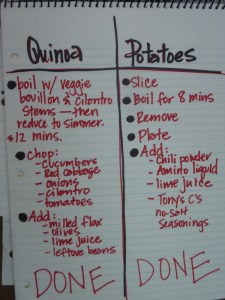 Quinoa
• boil w/ veggie
bouillon & cilantro
stems — then
reduce to simmer.
• 12 mins.
• Chop:
- cucumbers
- Red cabbage
- onions
- cilantro
- tomatoes
• Add:
- milled flax
- olives
- lime juice
- leftover beans
DONE
Potatoes
• Slice
• Boil for 8 mins
• Remove
• Plate
• Add:
- chili powder
- Amino liquid
- lime juice
- Tony's C's
no-salt
seasonings
DONE